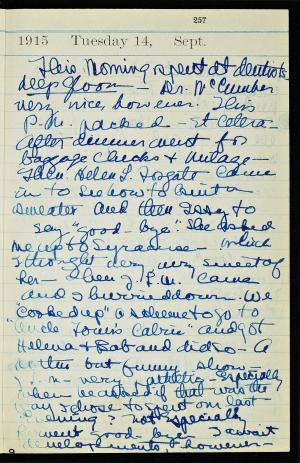 257
1915 Tuesday 14, Sept.
This morning spent at dentist's
deep gloom - Dr. McCumber
very nice, however. This
P.M. packed - et cetera -
after dinner went for
baggage checks &
Then Helen L. Forgot Came
in to see how to knit a
sweater and then Issy to
say "good-bye". She asked
me up to Syracuse - which
I thought very, very sweet of
her - Then J. F. M. came
and I hurried down. We
"cooked up" a scheme to go to
"Uncle Tom's Cabin" and got
Helena & Bab and did so. A
rotten but funny show
very pathetic - especially
when he asked if that was the
way I chose to spend our last
evening? Not specially
good-bye. I await
developments, however -